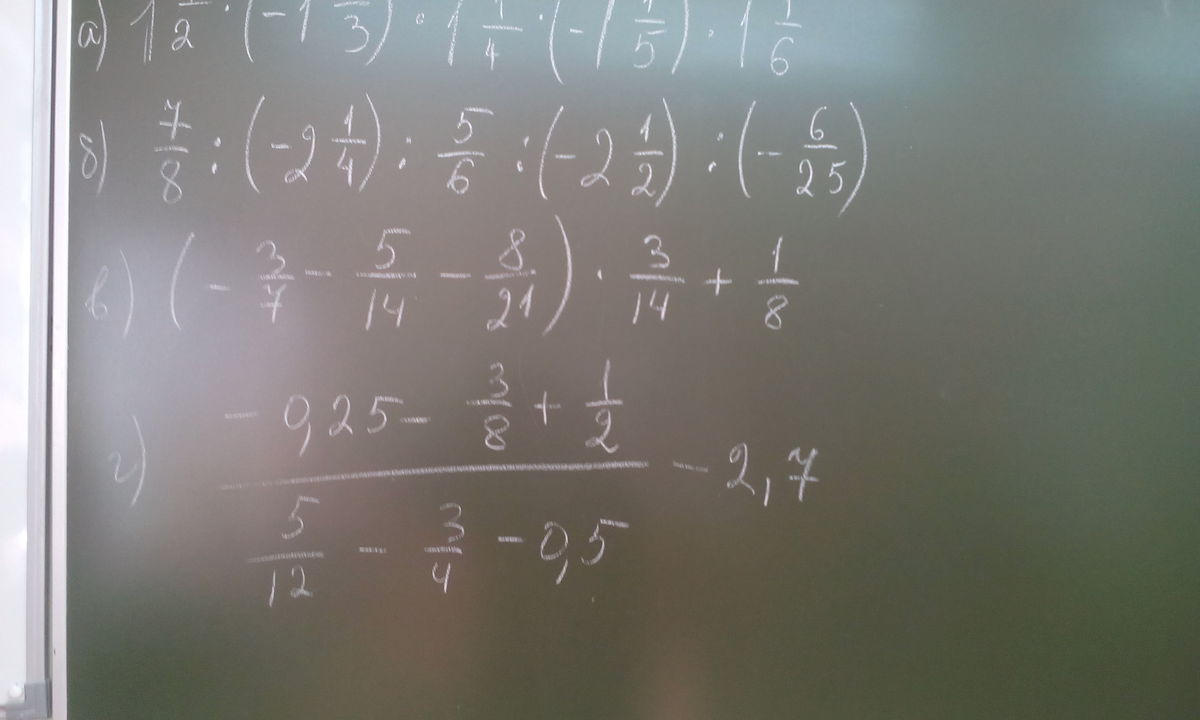 а) 1 1/2 · (-1 1/3) · 1 1/4 · (-1 1/5) · 1 1/6
б) 7/8 : (-2 1/4) : 5/6 : (-2 1/2) : (-6/25)
в) (-3/7 - 5/14 - 8/21) · 3/14 + 1/8
г) (-0,25 - 3/8 + 1/2)/(5/12 - 3/4 - 0,5) - 2,7